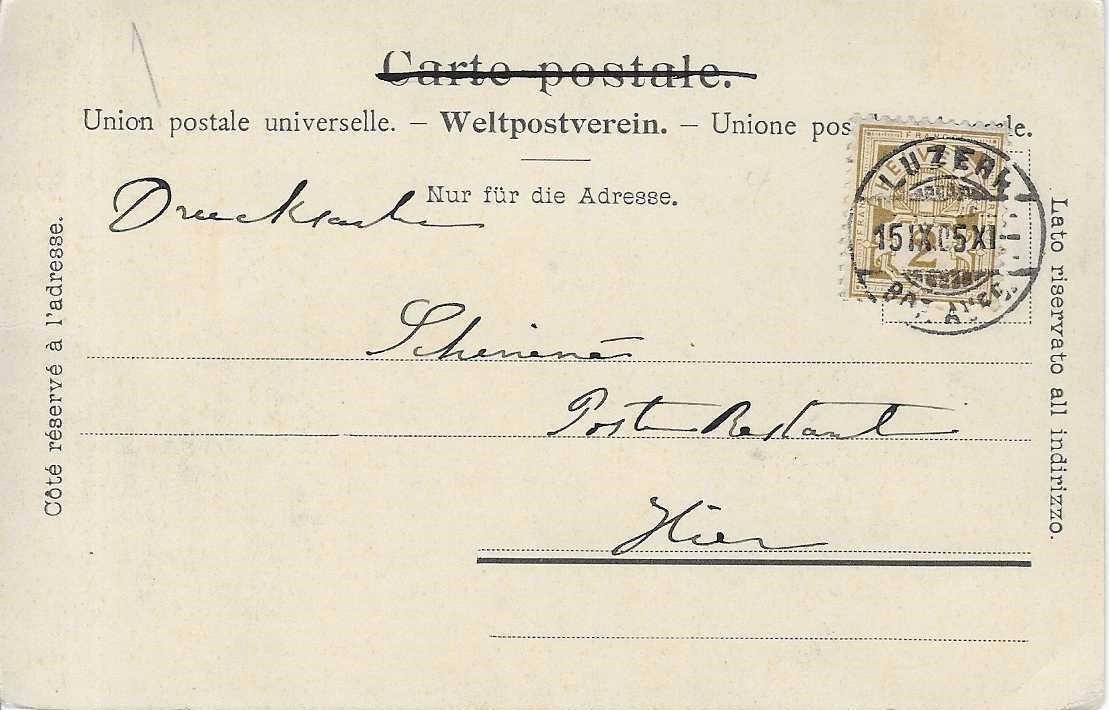 Carte postale.
Union postale universelle. – Weltpostverein. – Unione pos le.
Nur für die Adresse.
Drucksache
Côté réservé à l'adresse.
Lato riservato all indirizzo.
FRANCO
HELVE
FRANCO
2
LUZERN
15 IX 05 XI
Poste Restant
Hier